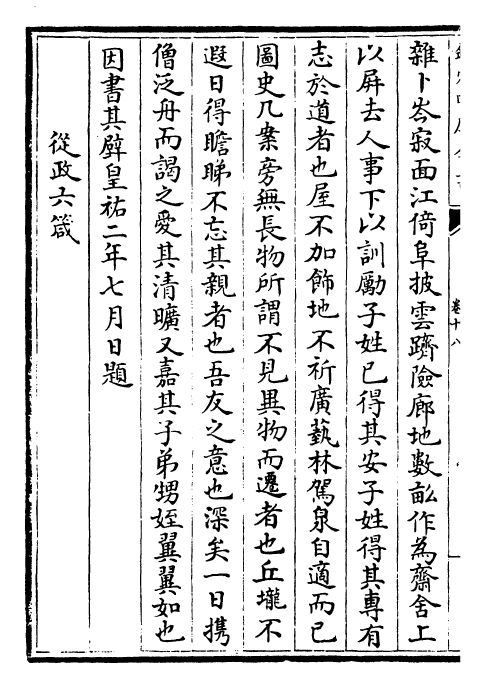 雜卜岑寂面江倚阜披雲躋險廊地數畝作為齋舍上
以屏去人事下以訓勵子姓已得其安子姓得其專有
志於道者也屋不加飾地不祈廣藝林駕泉自適而已
圖史几案旁無長物所謂不見異物而遷者也丘壠不
遐日得瞻睇不忘其親者也吾友之意也深矣一日携
僧泛舟而謁之愛其清曠又嘉其子弟甥姪翼翼如也
因書其壁皇祐二年七月日題
從政六箴
卷十八